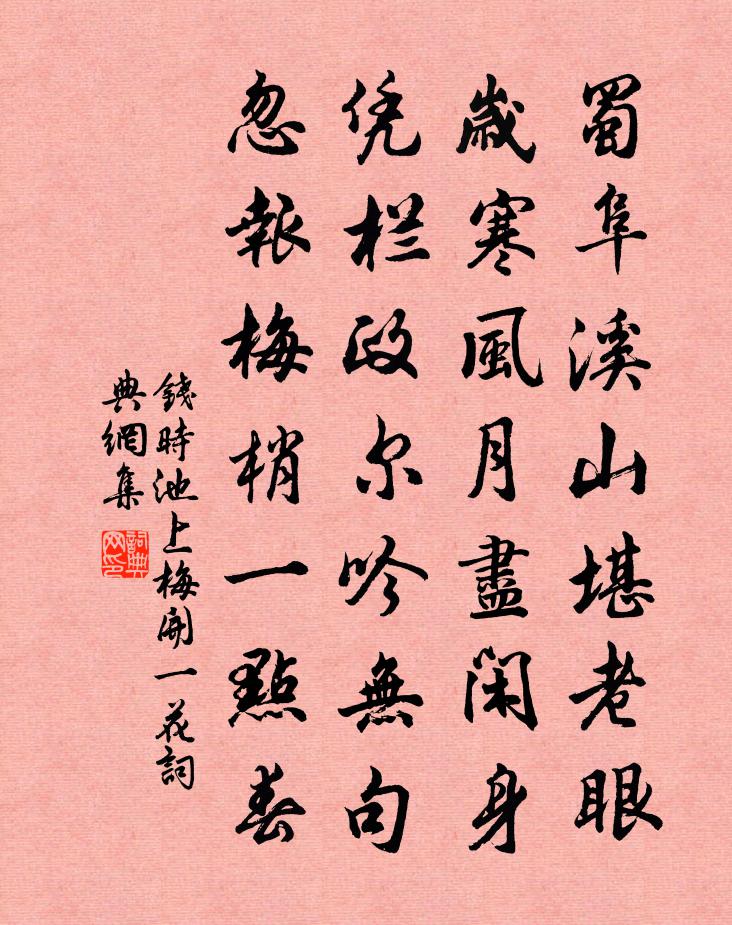 蜀阜溪山堪老眼
歲寒風月盡閑身
凭栏政尔吟無句
忽報梅梢一點春
錢時池上梅開一花詞
典網集
詞典网印